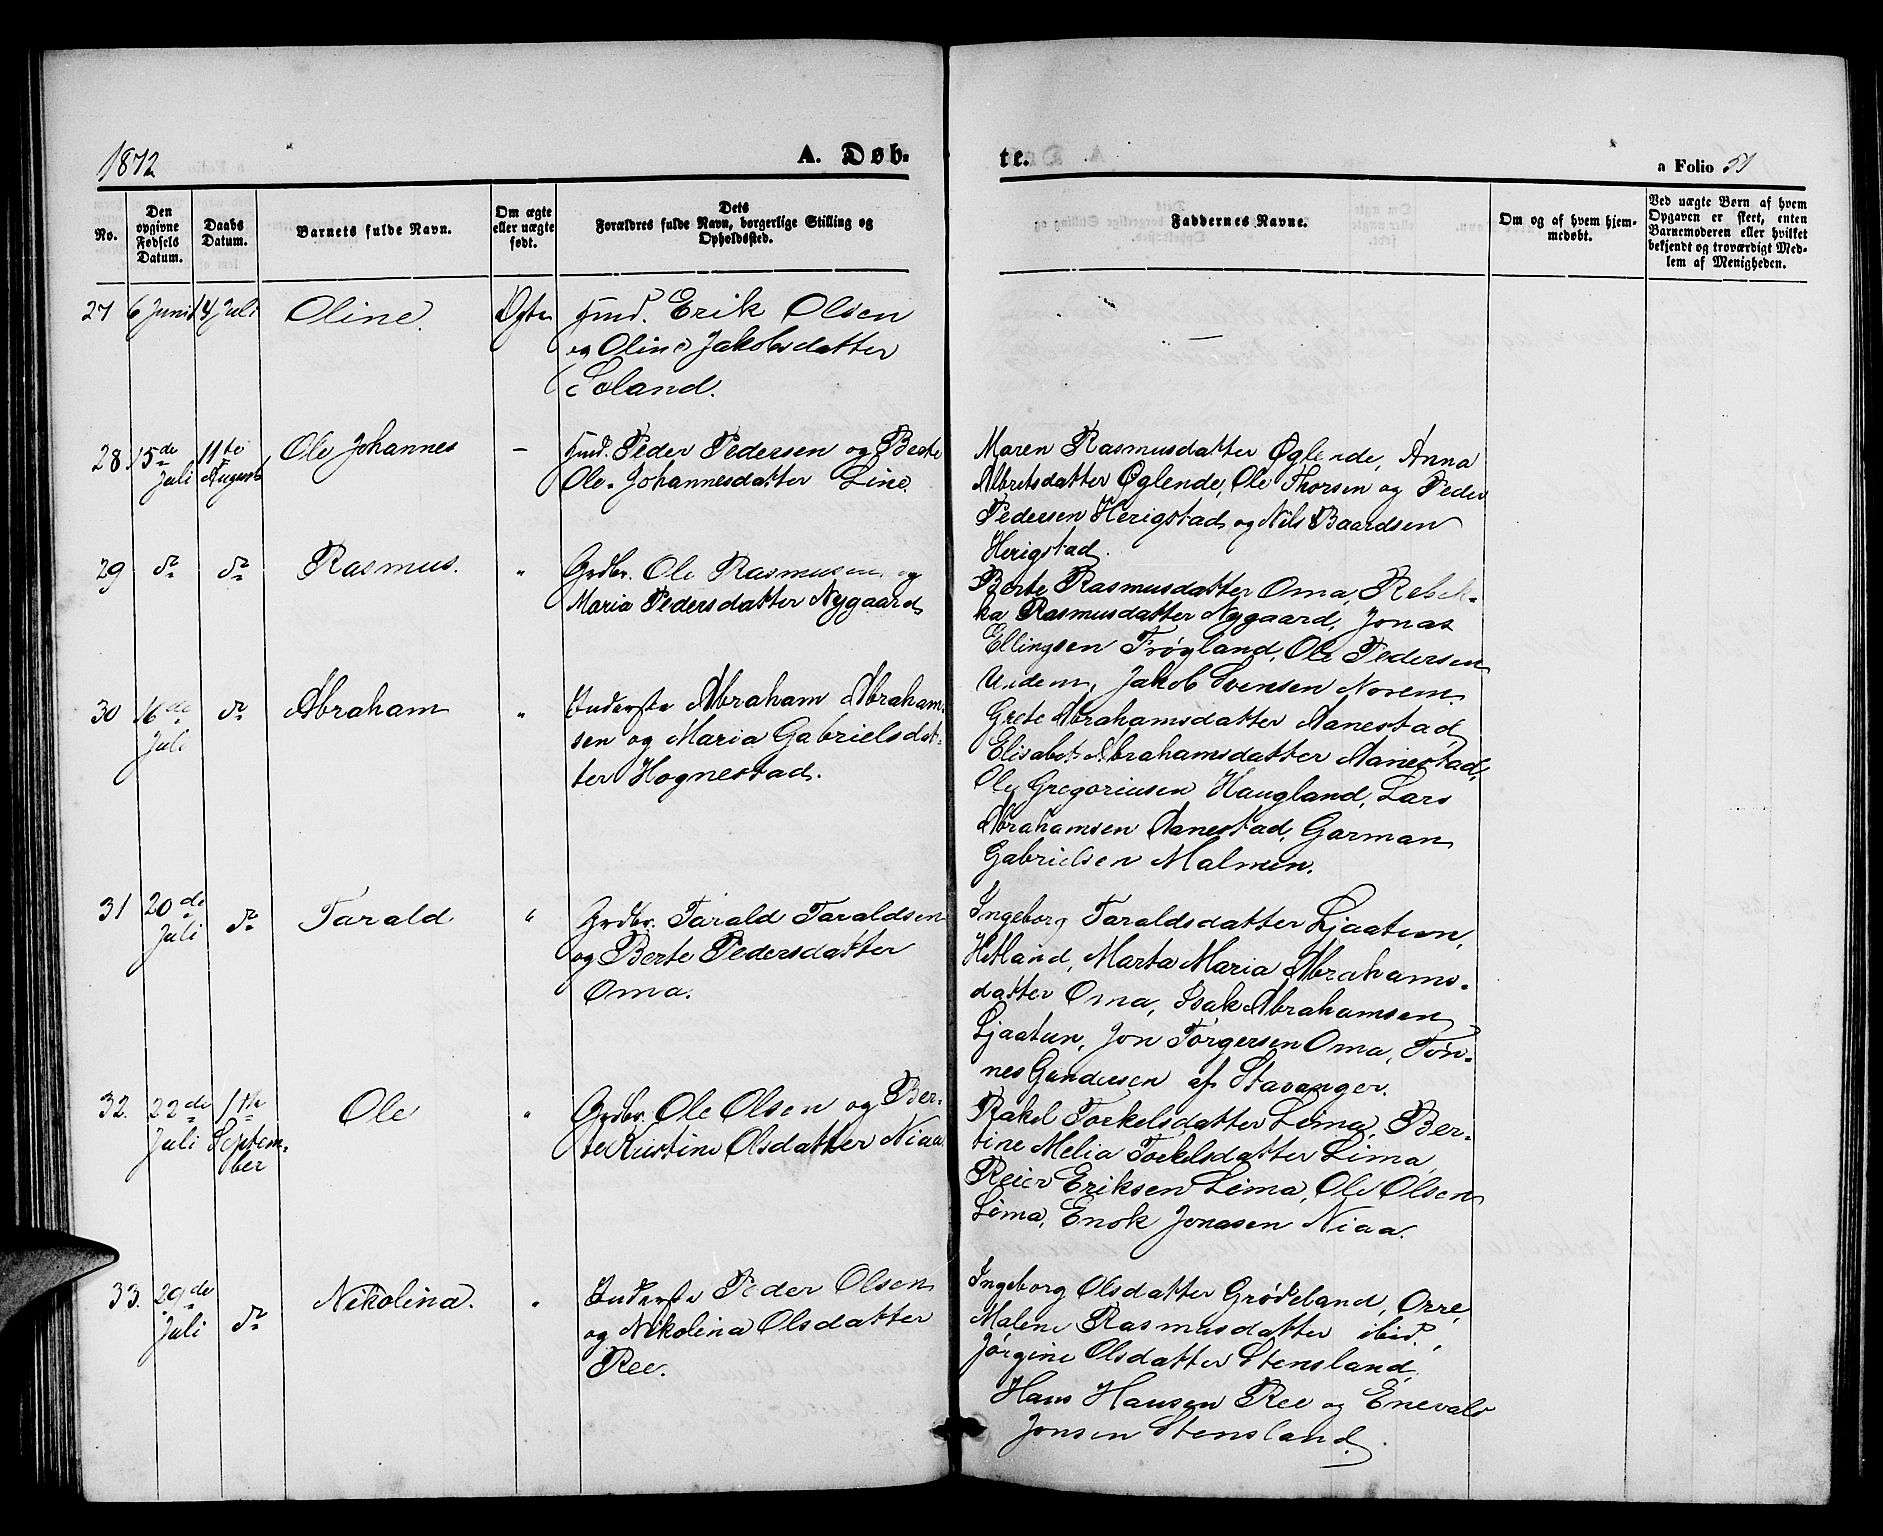 1872
A. Døb-
te.
a Folio 51
No.
Den opgivne Fødsels Datum.
Daabs Datum.
Barnets fulde Navn.
Om ægte eller uægte født.
Dets Forældres fulde Navn, borgerlige Stilling og Opholdssted.
Faddernes Navne.
Om og af hvem hjemmedøbt.
Ved uægte Børn af hvem Opgaven er skeet, enten Barnemoderen eller hvilket bekjendt og troværdigt Medlem af Menigheden.
27 6 Juni 14 Juli Oline. Ægte Gmd. Erik Olsen
og Oline Jakobsdatter
Soland.
—
28 15de Juli 11te August Ole Johannes — Gmd. Peder Pedersen og Berte
Ole-Johannesdatter Line.
Maren Rasmusdatter Øglende, Anna
Albretsdatter Øglende, Ole Thorsen og Peder
Pedersen Herigstad og Nils Baardsen
Herigstad.
29 do do Rasmus. " Grdbr. Ole Rasmusen og
Maria Pedersdatter Nygaard
Berte Rasmusdatter Oma, Rebek-
ka Rasmusdatter Nygaard, Jonas
Ellingsen Frøyland, Ole Pedersen
Undem, Jakob Svensen Norem.
30 16de Juli do Abraham " Inderste Abraham Abraham-
sen og Maria Gabrielsdat-
ter Hognestad.
Grete Abrahamsdatter Aanestad,
Elisabet Abrahamsdatter Aanestad,
Ole Gregoriusen Haugland, Lars
Abrahamsen Aanestad, Garman
Gabrielsen Malmen.
31 20de Juli do Tarald " Grdbr. Tarald Taraldsen
og Berte Pedersdatter
Oma.
Ingeborg Taraldsdatter Ljaatun,
Hetland, Marta Maria Abrahams-
datter Oma, Isak Abrahamsen
Ljaatun, Jon Torgersen Oma, Tøn-
nes Gundersen af Stavanger.
32. 22de Juli 1ste Septem-
ber Ole " Grdbr. Ole Olsen og Ber-
te Kristine Olsdatter Niaa
Rakel Torkelsdatter Lima, Ber-
tine Melia Torkelsdatter Lima,
Reier Eriksen Lima, Ole Olsen
Lima, Enok Jonasen Niaa.
33. 29de Juli do Nikolina. " Inderste Peder Olsen
og Nikolina Olsdatter
Ree.
Ingeborg Olsdatter Grødeland, Orre,
Malene Rasmusdatter ibid,
Jørgine Olsdatter Stensland,
Hans Hansen Ree og Enevald
Jonsen Stensland.